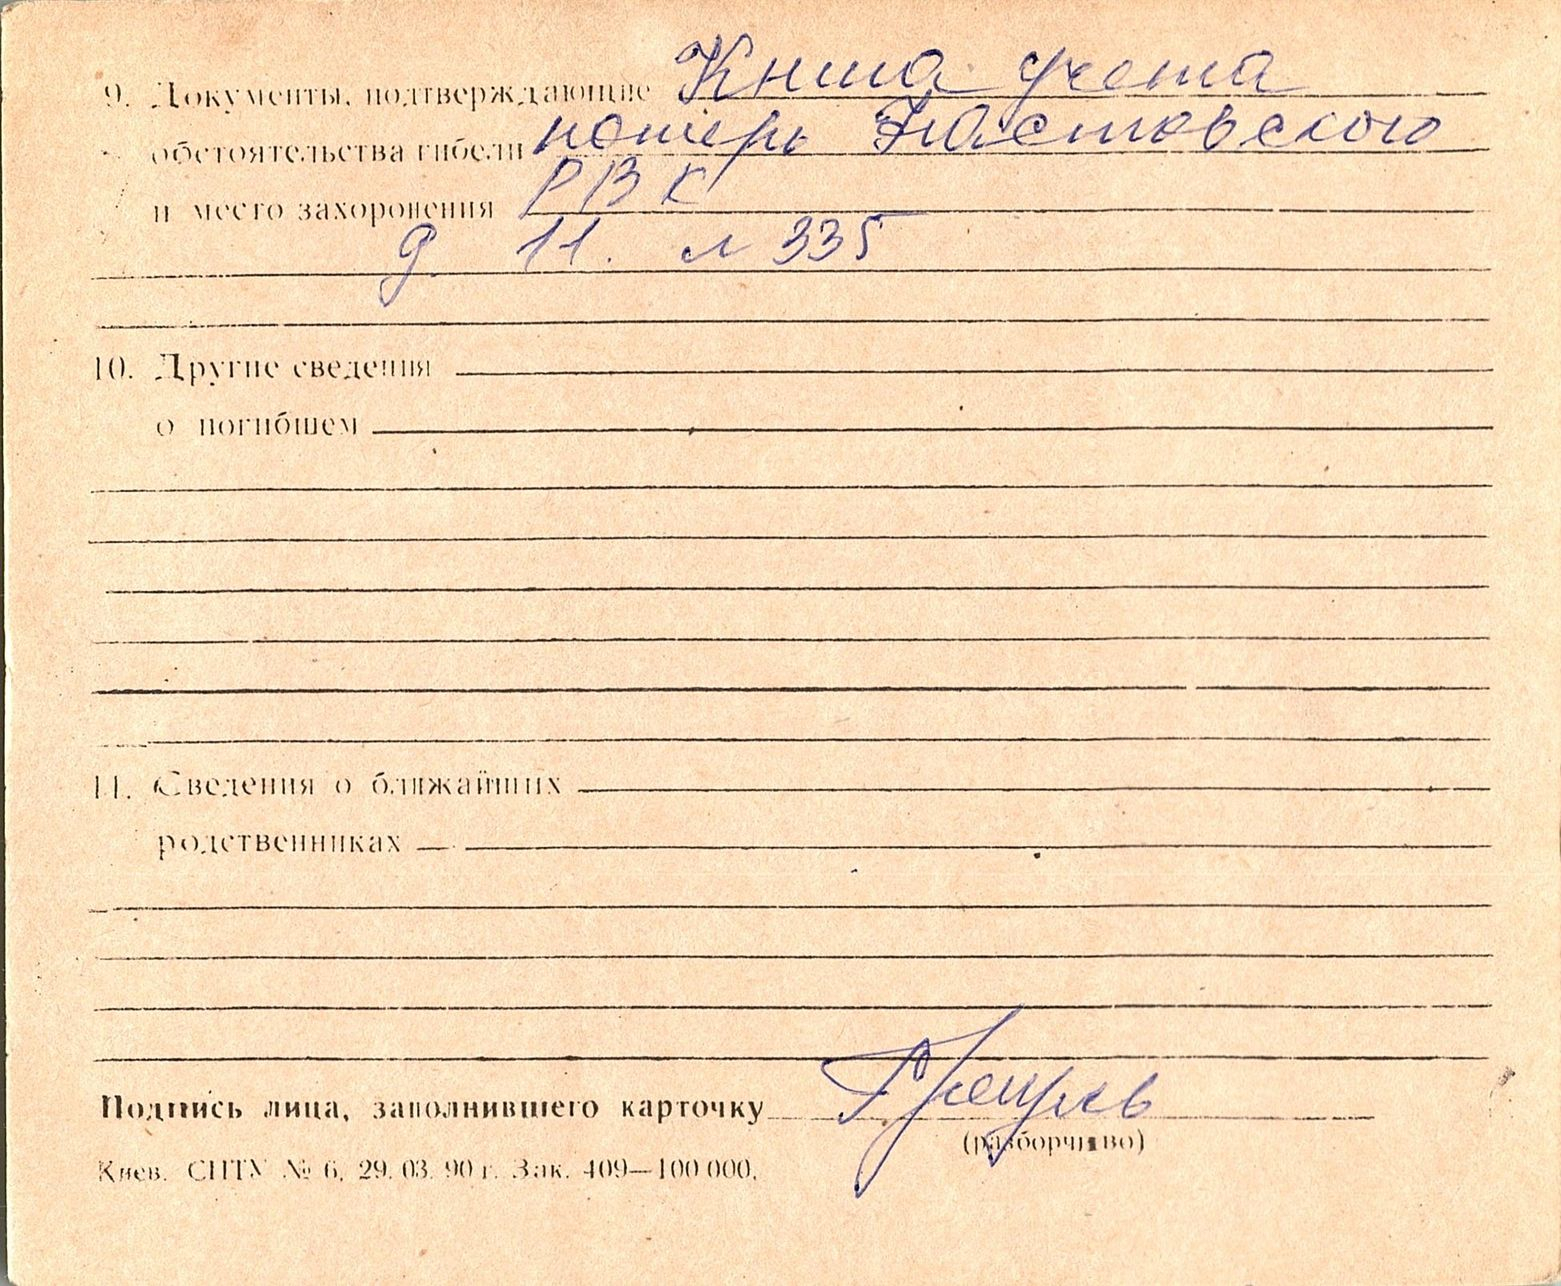 9. Документы, подтверждающие Книга учета
обстоятельства гибели потерь
и место захоронения РВК
д. 11. л 335
10. Другие сведения
о погибшем
11. Сведения о ближайших
родственниках
Подпись лица, заполнившего карточку
(разборчиво)
Киев. СПТУ № 6, 29. 03. 90 г. Зак. 409—100 000.